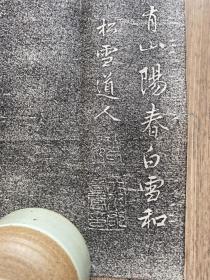 青山陽春白雪和
松雪道人